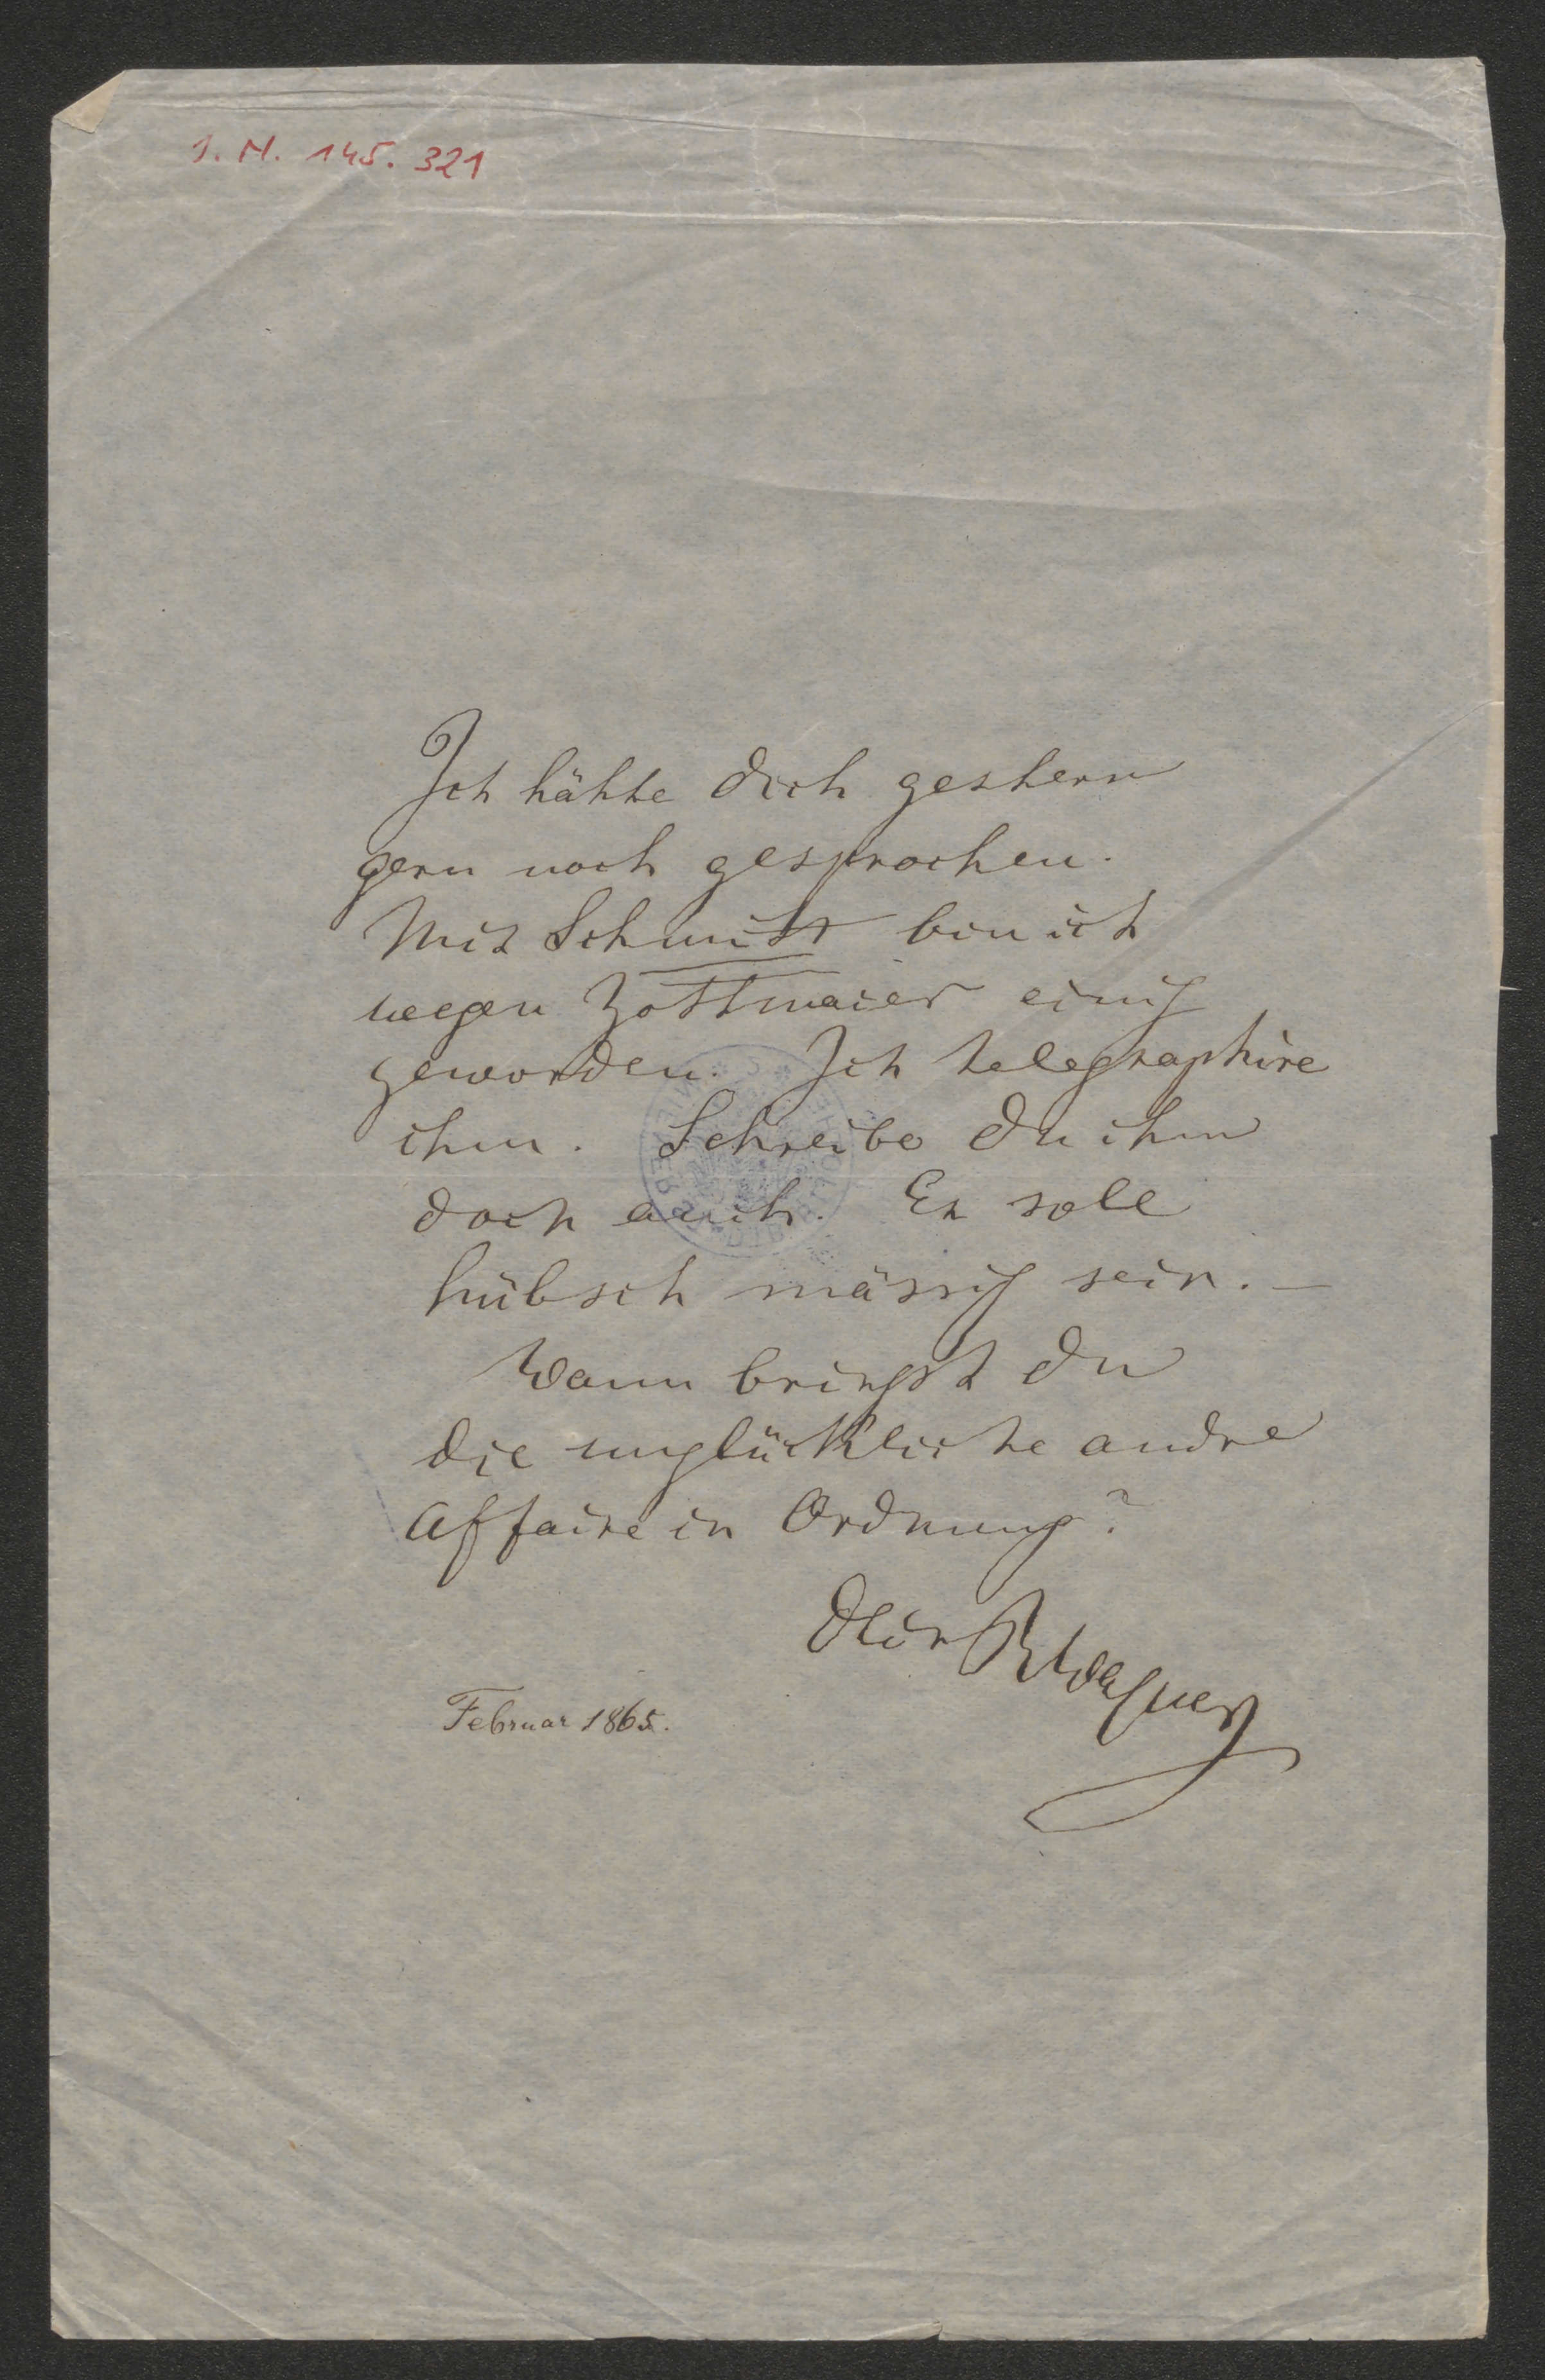 I. N. 145.321
Ich hätte dich gestern
gern noch gesprochen.
Mit Schmitt bin ich
wegen Zottmaier einig
geworden. Ich telegraphire
ihm. Schreibe Du ihm
doch auch. Er soll
hübsch mässig sein. –
Wann bringst Du
die unglückliche andre
Affaire in Ordnung?
Dein RWagner
Februar 1865.